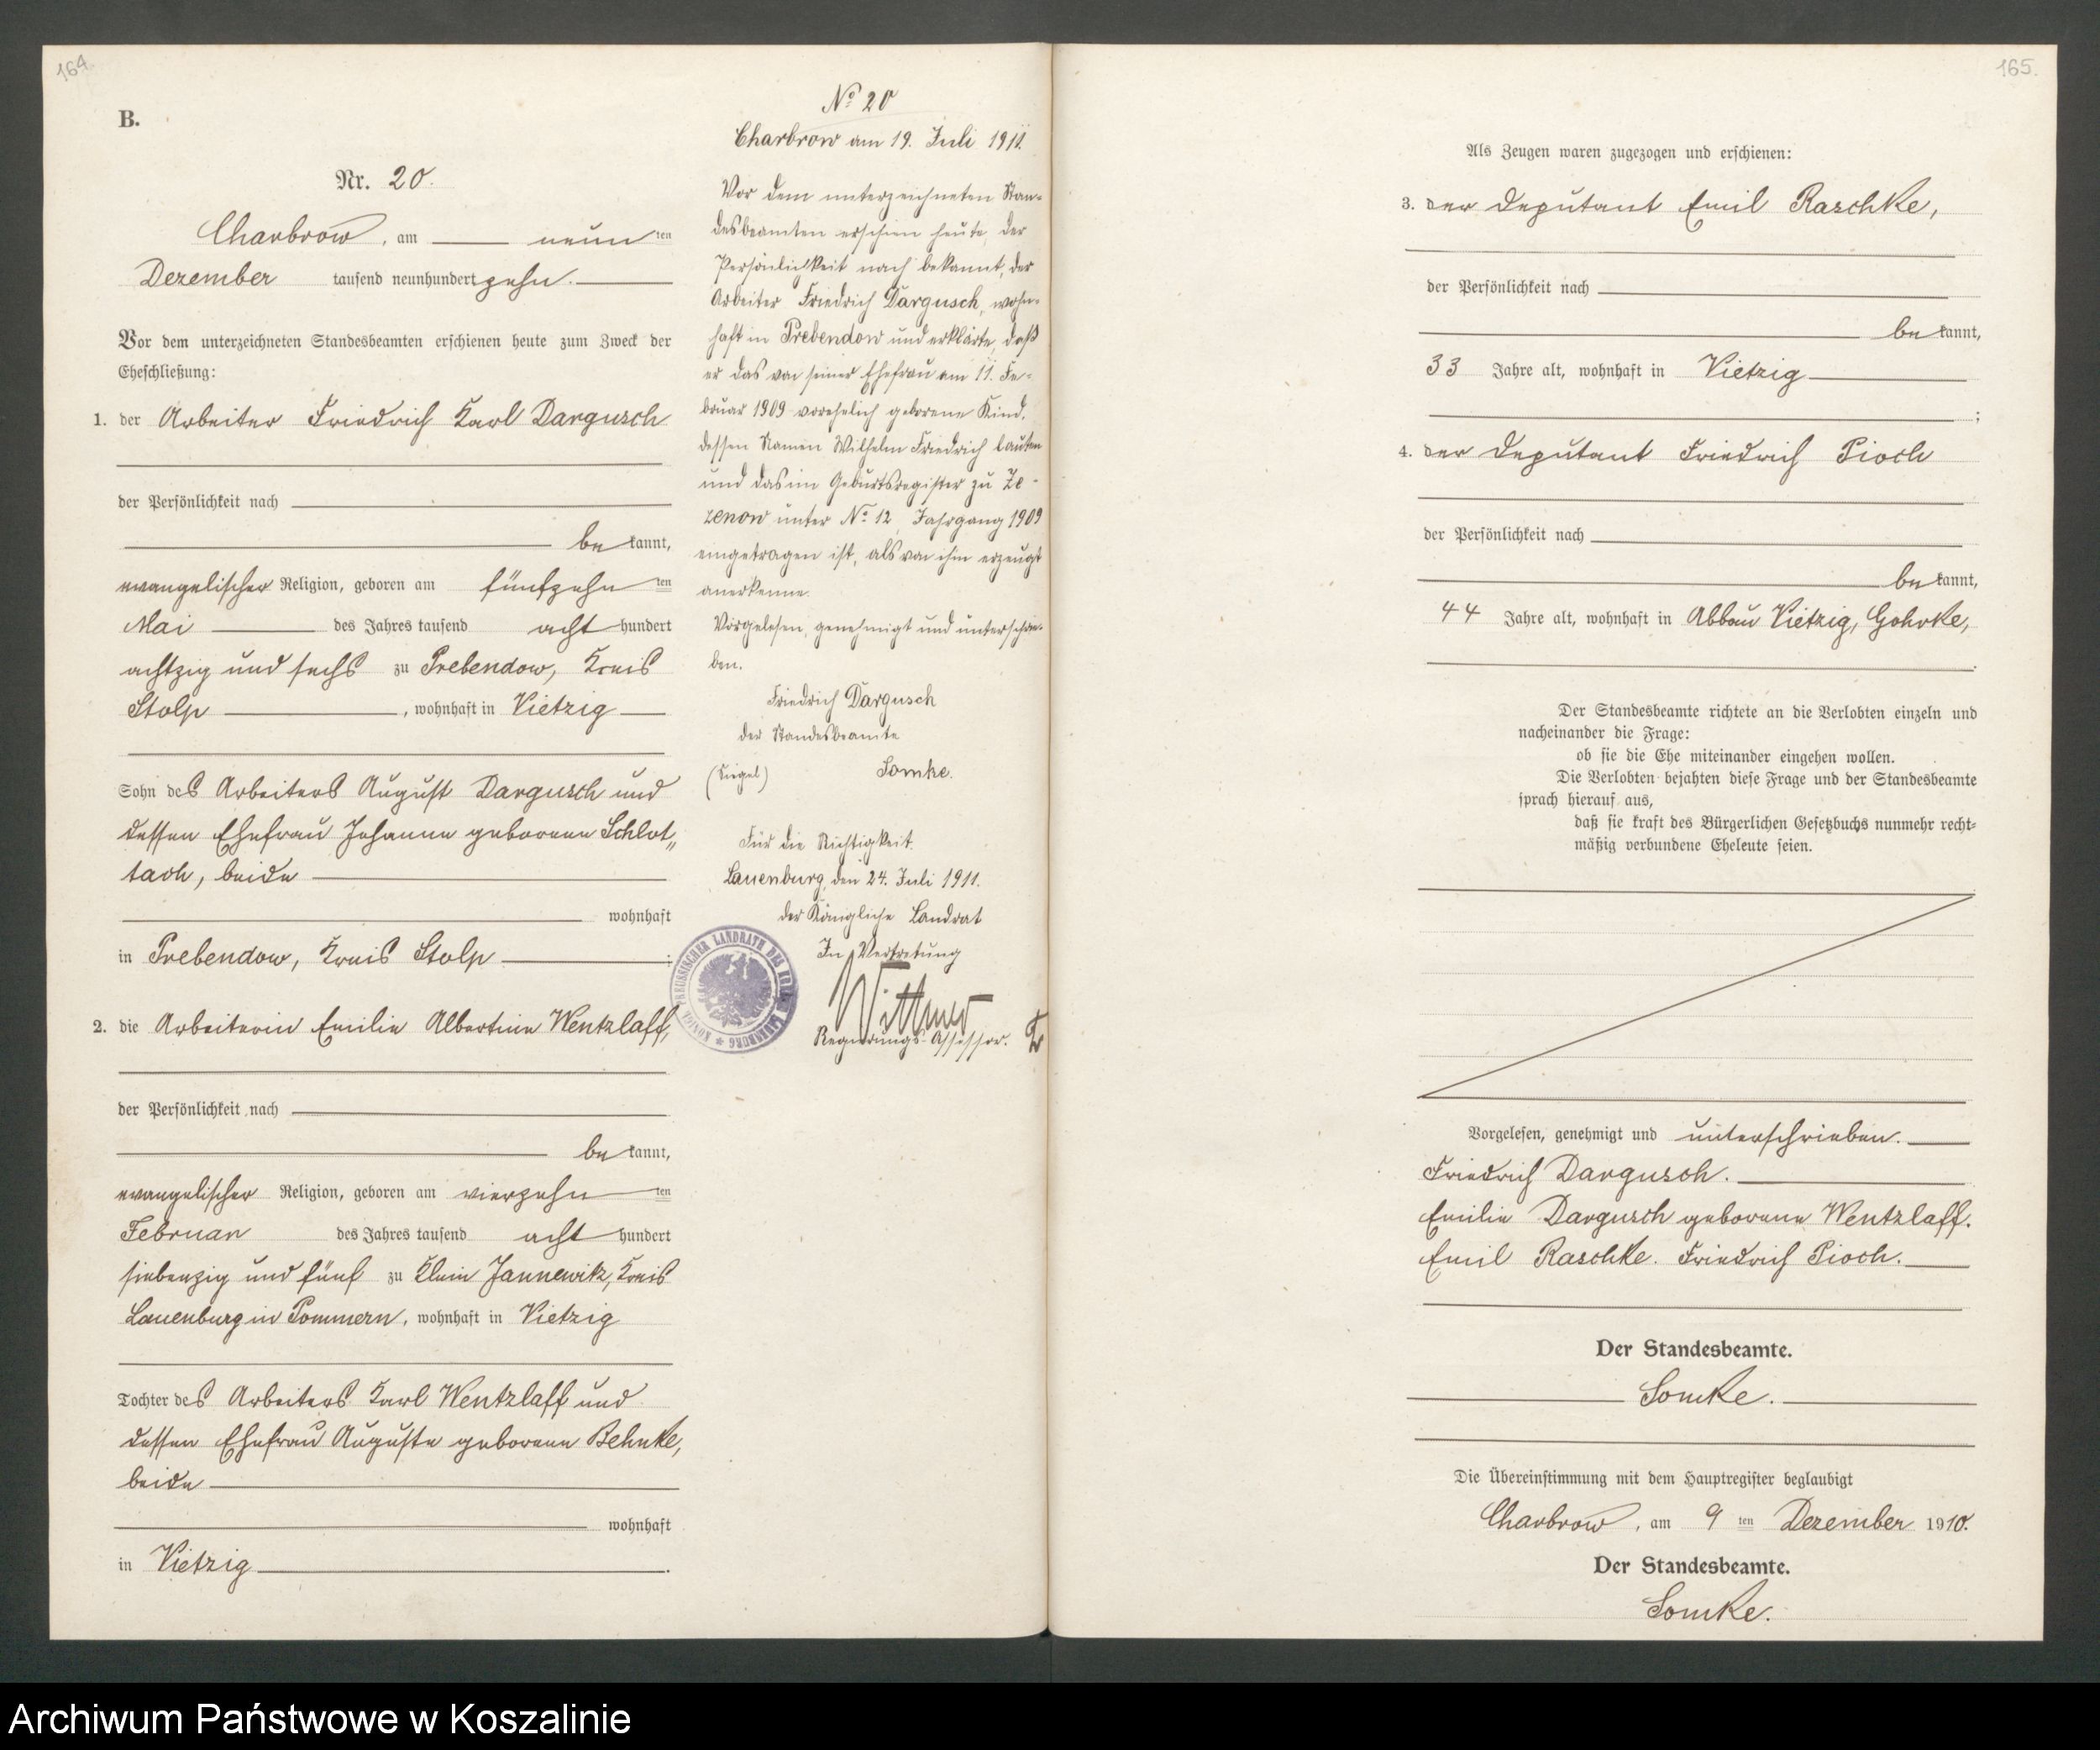 164
B.
Nr. 20.
Charbrow, am neunten
Dezember tausend neunhundert zehn.
Vor dem unterzeichneten Standesbeamten erschienen heute zum Zweck der
Eheschließung:
1. der Arbeiter Friedrich Karl Dargusch
der Persönlichkeit nach
be kannt,
evangelischer Religion, geboren am fünfzehn ten
Mai des Jahres tausend acht hundert
achtzig und sechs zu Prebendow, Kreis
Stolp, wohnhaft in Vietzig
Sohn des Arbeiters August Dargusch und
dessen Ehefrau Johanne geborene Schlot„
tach, beide
wohnhaft
in Prebendow, Kreis Stolp ;
2. die Arbeiterin Emilie Albertine Wentzlaff,
der Persönlichkeit nach
be kannt,
evangelischer Religion, geboren am vierzehn ten
Februar des Jahres tausend acht hundert
siebenzig und fünf zu Klein Jannewitz, Kreis
Lauenburg in Pommern, wohnhaft in Vietzig
Tochter des Arbeiters Karl Wentzlaff und
dessen Ehefrau Auguste geborene Behnke,
beide
wohnhaft
in Vietzig .
No 20
Charbrow am 19. Juli 1911.
Vor dem unterzeichneten Stan-
desbeamten erschien heute, der
Persönlichkeit nach bekannt, der
Arbeiter Friedrich Dargusch, wohn-
haft in Prebendow und erklärte, daß
er das von seiner Ehefrau am 11. Fe-
bruar 1909 vorehelich geborene Kind,
dessen Namen Wilhelm Friedrich lauten
und das im Geburtsregister zu Ze-
zenow unter No 12, Jahrgang 1909
eingetragen ist, als von ihm erzeugt
anerkenne.
Vorgelesen, genehmigt und unterschrie-
ben.
Friedrich Dargusch
der Standesbeamte
(Siegel) Somke.
Für die Richtigkeit.
Lauenburg, den 24. Juli 1911.
der Königliche Landrat
In Vertretung
Regierungs-Assessor.
165.
Als Zeugen waren zugezogen und erschienen:
3. der Deputant Emil Raschke,
der Persönlichkeit nach
be kannt,
33 Jahre alt, wohnhaft in Vietzig
;
4. der Deputant Friedrich Pioch
der Persönlichkeit nach
be kannt,
44 Jahre alt, wohnhaft in Abbau Vietzig, Gohrke,
.
Der Standesbeamte richtete an die Verlobten einzeln und
nacheinander die Frage:
ob sie die Ehe miteinander eingehen wollen.
Die Verlobten bejahten diese Frage und der Standesbeamte
sprach hierauf aus,
daß sie kraft des Bürgerlichen Gesetzbuchs nunmehr recht-
mäßig verbundene Eheleute seien.
Vorgelesen, genehmigt und unterschrieben.
Friedrich Dargusch.
Emilie Dargusch geborene Wentzlaff.
Emil Raschke. Friedrich Pioch.
Der Standesbeamte.
Somke.
Die Übereinstimmung mit dem Hauptregister beglaubigt
Charbrow, am 9 ten Dezember 1910.
Der Standesbeamte.
Somke.
Archiwum Państwowe w Koszalinie